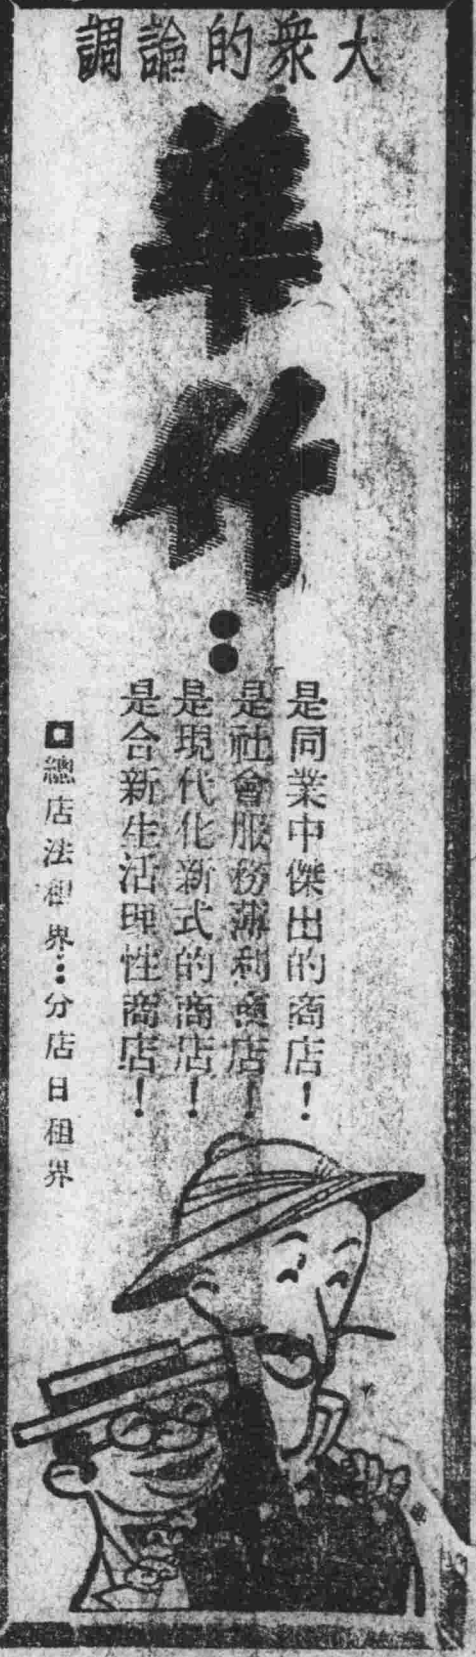 大衆的論調
華竹
：
是同業中傑出的商店！
是社會服務薄利商店！
是現代化新式的商店！
是合新生活理性商店！
總店法租界⋮分店日租界